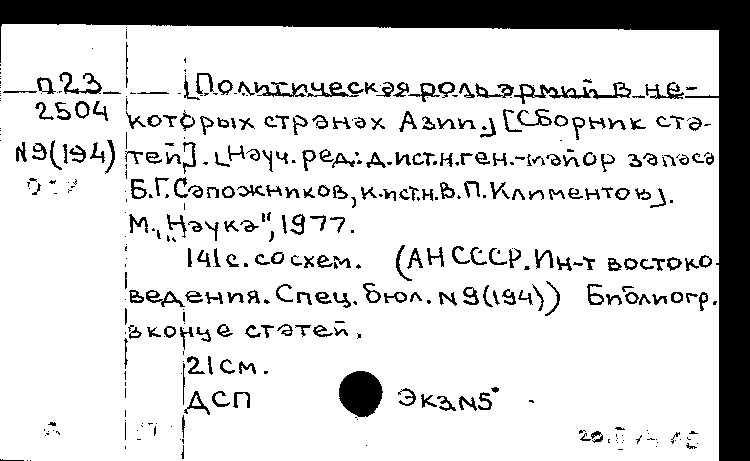 п23 [Политическая роль армий в не-
2504 которых странах Азии.] [Сборник ста-
N9(194) тей]. [Науч. ред.: д.ист.н.ген.-майор запаса
Б.Г.Сапожников, к.ист.н.В.П.Климентов].
М., „Наука", 1977.
141с. со схем. (АН СССР. Ин-т востоко-
ведения. Спец. бюл. N9(194)) Библиогр.
в конце статей.
21см.
ДСП Экз.N5